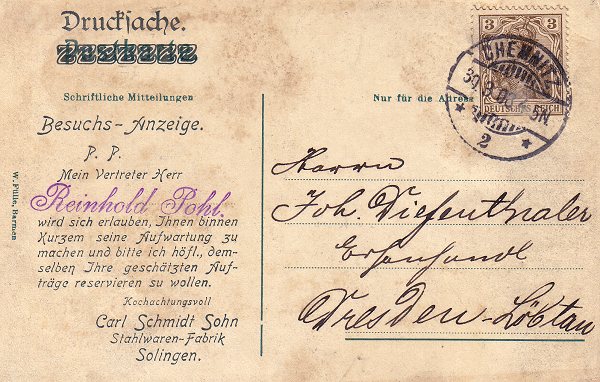 Drucksache.
Postkarte
Schriftliche Mitteilungen
Nur für die Adresse
Besuchs-Anzeige.
P. P.
Mein Vertreter Herr
Reinhold Pohl.
wird sich erlauben, Ihnen binnen
Kurzem seine Aufwartung zu
machen und bitte ich höfl., dem-
selben Ihre geschätzten Auf-
träge reservieren zu wollen.
Hochachtungsvoll
Carl Schmidt Sohn
Stahlwaren-Fabrik
Solingen.
W. Fülle, Barmen
3 3
DEUTSCHES REICH
CHEMNITZ
5N
2
Herrn
Joh. Diefenthaler
Eisenhandl
Dresden-Löbtau